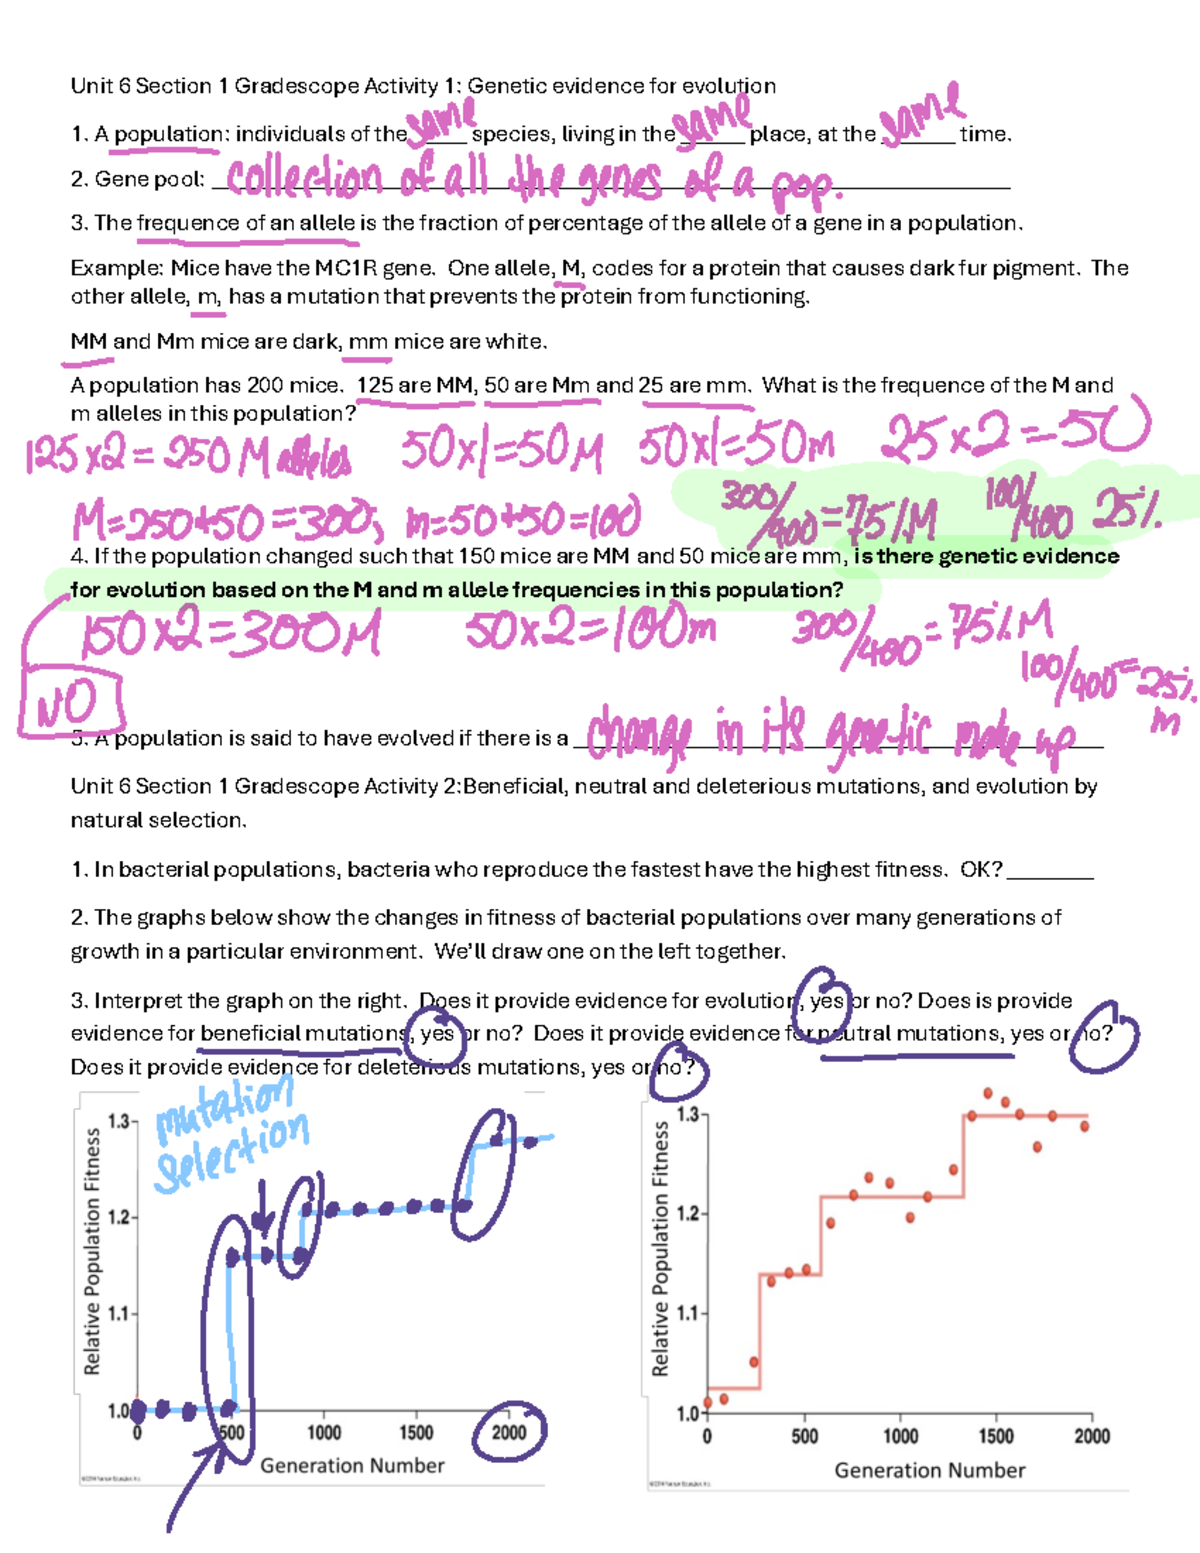 Unit 6 Section 1 Gradescope Activity 1: Genetic evidence for evolution
1. A population: individuals of the same species, living in the same place, at the same time.
2. Gene pool: collection of all the genes of a pop.
3. The frequence of an allele is the fraction of percentage of the allele of a gene in a population.
Example: Mice have the MC1R gene. One allele, M, codes for a protein that causes dark fur pigment. The
other allele, m, has a mutation that prevents the protein from functioning.
MM and Mm mice are dark, mm mice are white.
A population has 200 mice. 125 are MM, 50 are Mm and 25 are mm. What is the frequence of the M and
m alleles in this population?
125x2=250 M alleles 50x1=50M 50x1=50m 25x2=50
M=250+50=300; m=50+50=100 300/400=75%M 100/400 25%
4. If the population changed such that 150 mice are MM and 50 mice are mm, is there genetic evidence
for evolution based on the M and m allele frequencies in this population?
150x2=300M 50x2=100m 300/400=75%M
100/400=25%
m
NO
5. A population is said to have evolved if there is a change in its genetic make up
Unit 6 Section 1 Gradescope Activity 2:Beneficial, neutral and deleterious mutations, and evolution by
natural selection.
1. In bacterial populations, bacteria who reproduce the fastest have the highest fitness. OK?
2. The graphs below show the changes in fitness of bacterial populations over many generations of
growth in a particular environment. We'll draw one on the left together.
3. Interpret the graph on the right. Does it provide evidence for evolution, yes or no? Does is provide
evidence for beneficial mutations, yes or no? Does it provide evidence for neutral mutations, yes or no?
Does it provide evidence for deleterious mutations, yes or no?
mutation
selection
Relative Population Fitness
1.3
1.2
1.1
1.0
0 500 1000 1500 2000
Generation Number
Relative Population Fitness
1.3
1.2
1.1
1.0
0 500 1000 1500 2000
Generation Number